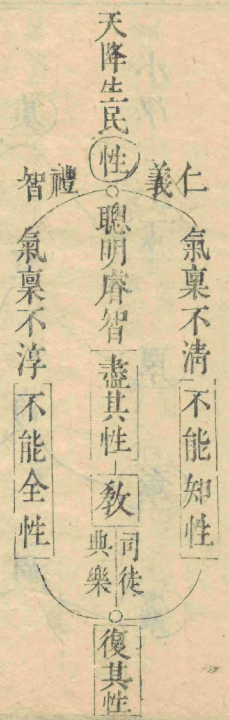 天降生民性
仁義
禮智
氣稟不清不能知性
聰明睿智盡其性教
司徒
典樂
氣稟不淳不能全性
復其性